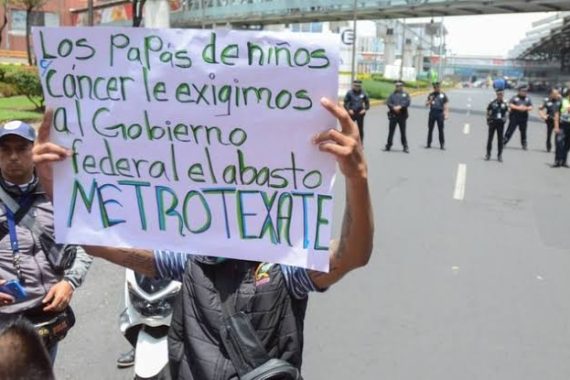 Los PaPás de niños
Cáncer le exigimos
al Gobierno
federal el abasto
METROTEXATE